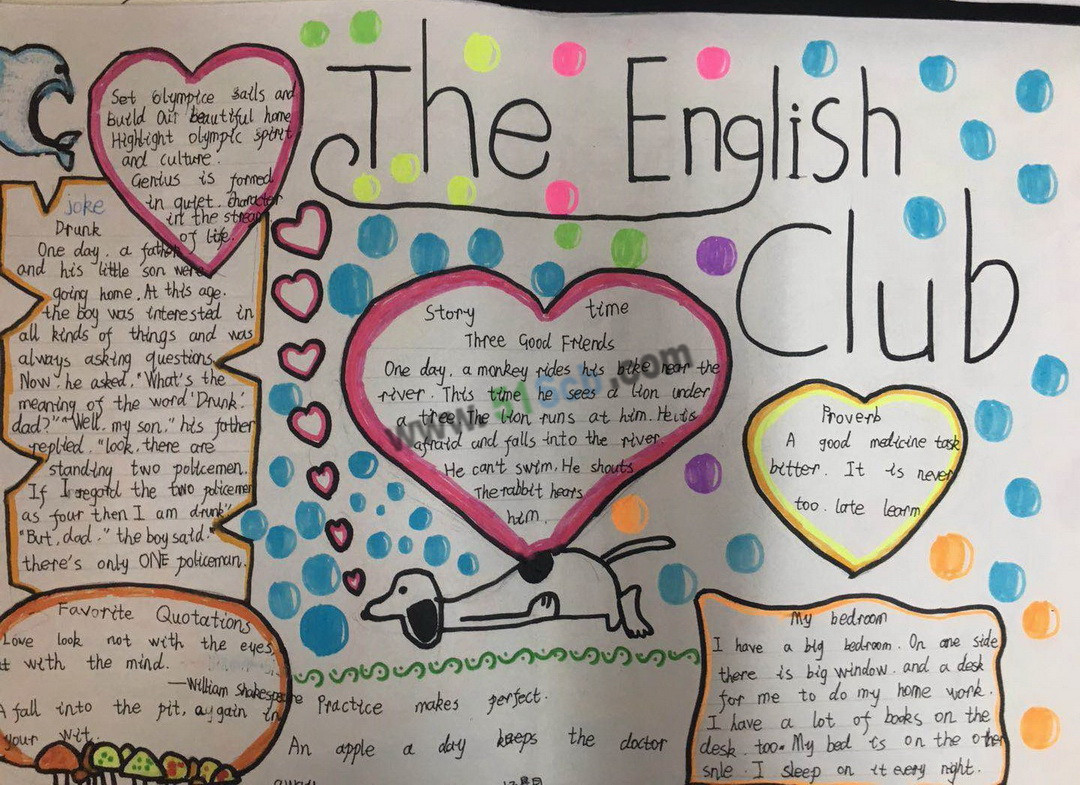 The English
Club
Set Olympice Sails and
build Our beautiful home
Highlight olympic spirit
and culture.
Genius is formed
in quiet. character
in the stream
of life.
Joke
Drunk
One day, a father
and his little son were
going home. At this age.
the boy was interested in
all kinds of things and was
always asking questions.
Now, he asked, "What's the
meaning of the word 'Drunk',
dad?" "Well, my son," his father
replied, "look, there are
standing two policemen.
If I regotd the two policemen
as four then I am drunk"
"But, dad," the boy said."
there's only ONE policeman.
Story time
Three Good Friends
One day, a monkey rides his bike near the
river. This time he sees a lion under
a tree. The lion runs at him. He is
afraid and falls into the river.
He can't swim, He shouts
The rabbit hears
him.
www.51Scb.com
Proverb
A good medicine task
bitter. It is never
too late learm
Favorite Quotations
Love look not with the eyes,
t with the mind.
—William Shakespeare
A fall into the pit, a gain in
your wit.
Practice makes perfect.
An apple a day keeps the doctor
away
My bedroom
I have a big bedroom. On one side
there is big window. and a desk
for me to do my home work.
I have a lot of books on the
desk, too. My bed is on the other
snle. I sleep on it every night.